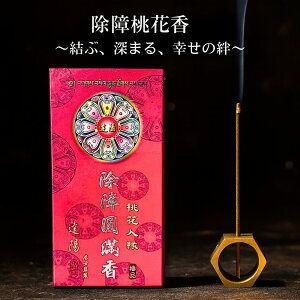 除障桃花香
～結ぶ、深まる、幸せの絆～
達陽
桃花人緣
除障圓滿香
達陽
極品